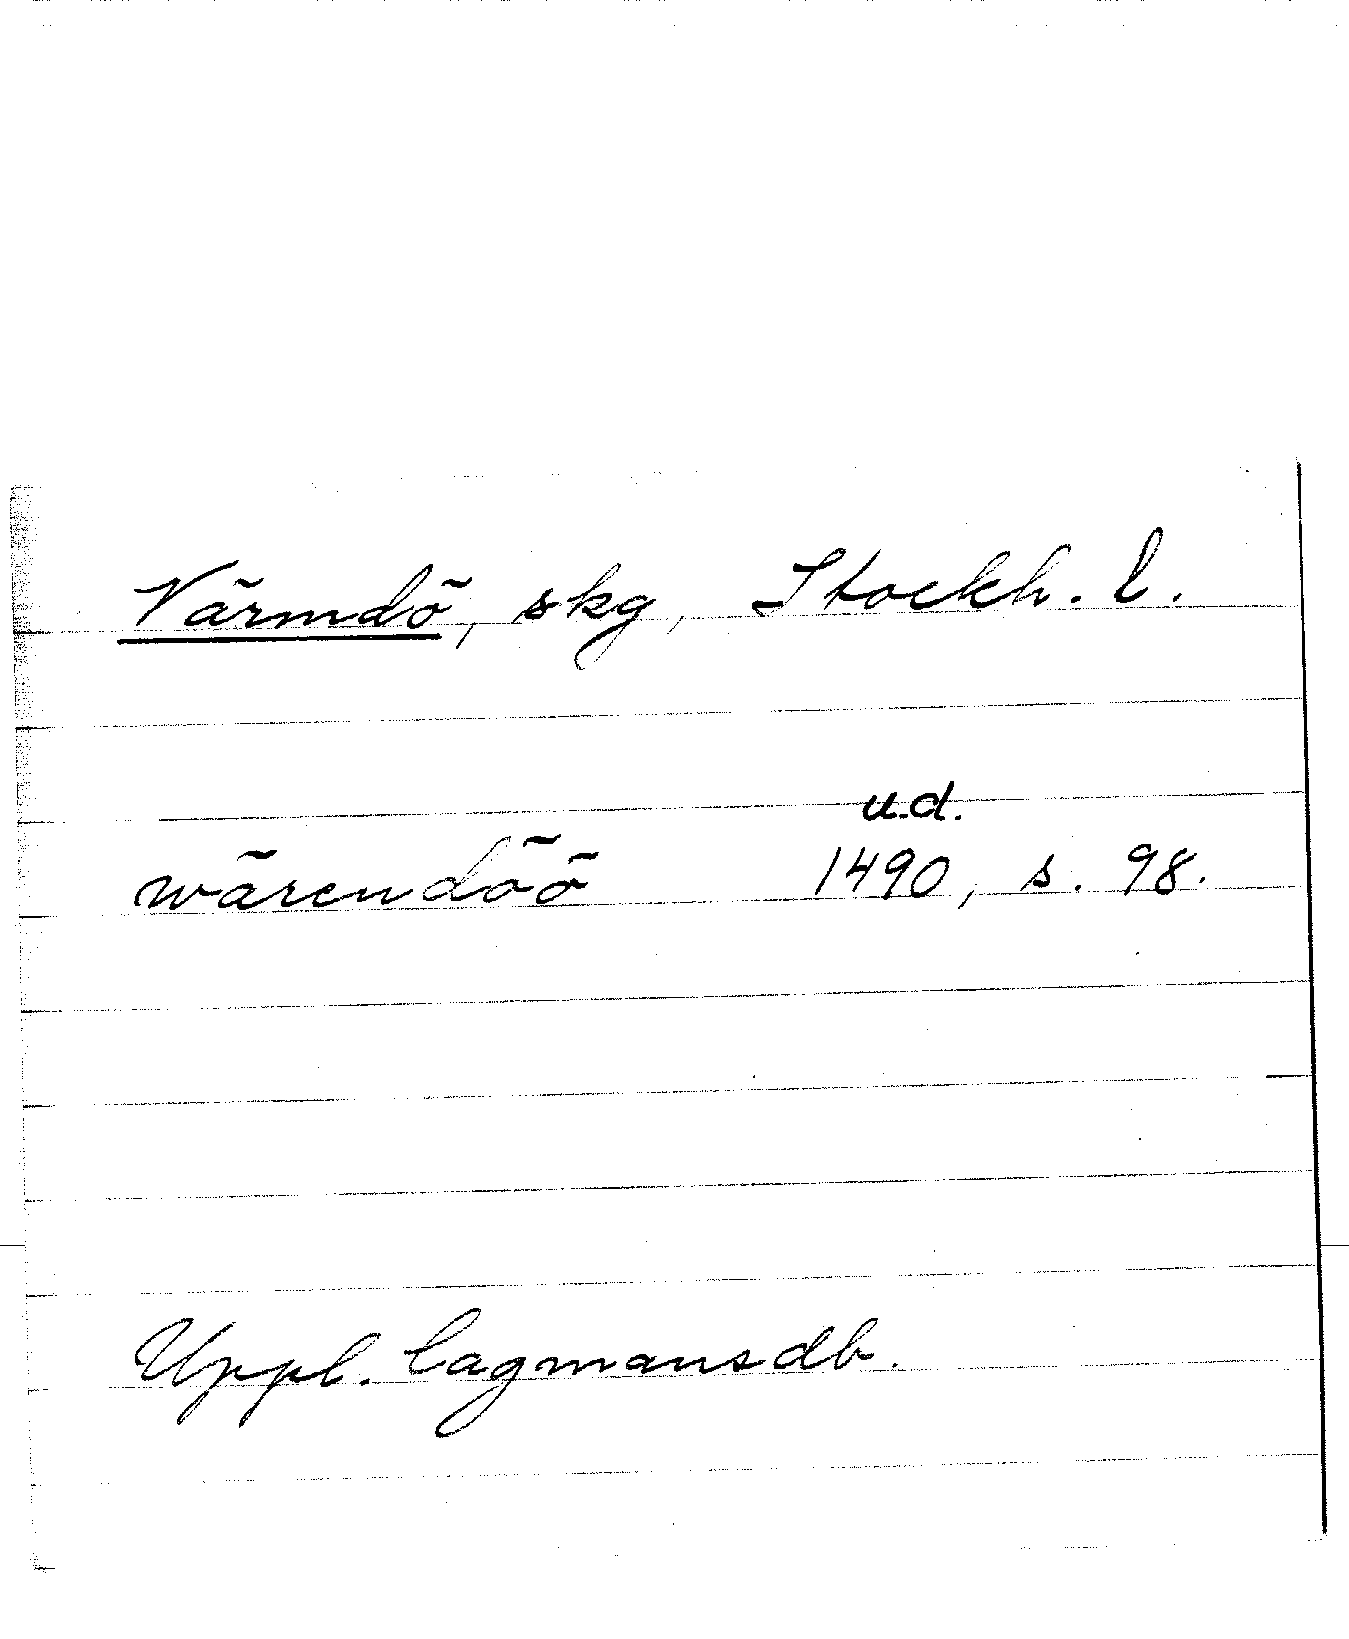 Värmdö, skg, Stockh. l.
u.d.
wärendöö 1490, s. 98.
Uppl. lagmansdb.